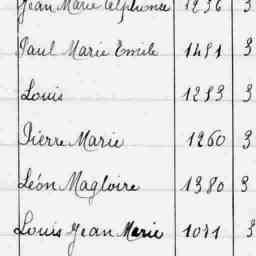 Jean Marie Alphonse 1236 3
Paul Marie Emile 1491 3
Louis 1293 3
Pierre Marie 1260 3
Léon Magloire 1380 3
Louis Jean Marie 1071 3